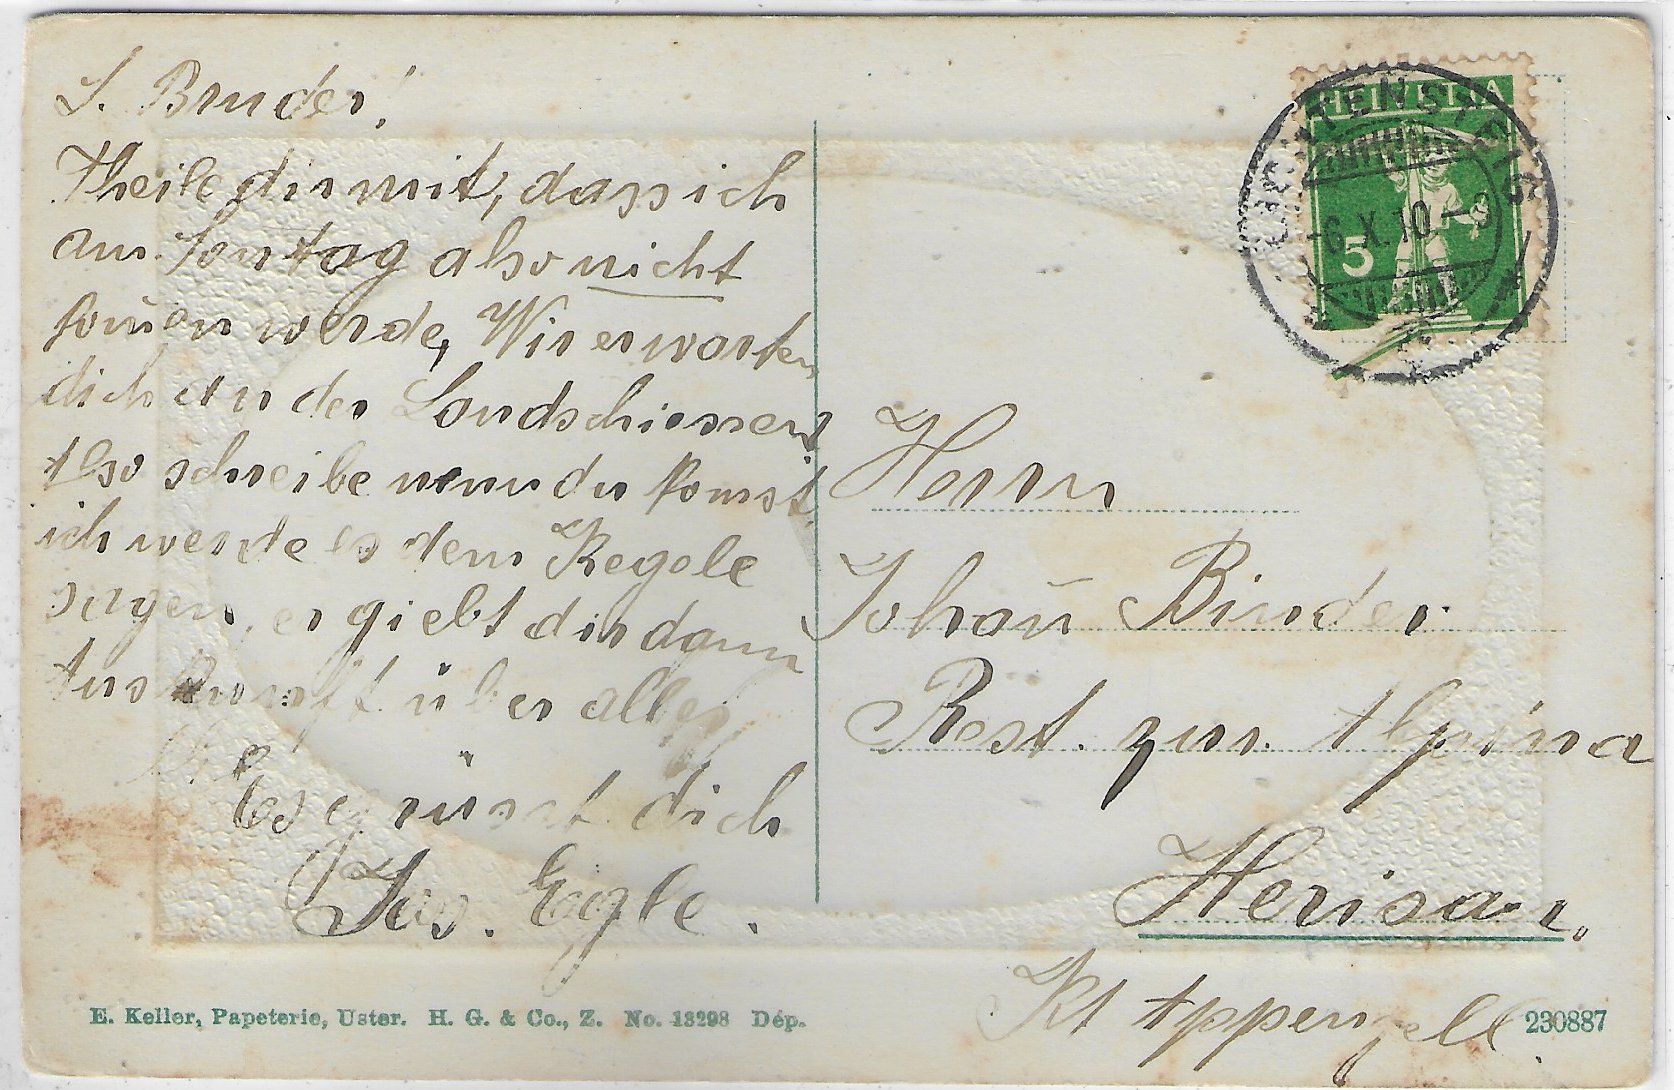 L. Bruder!
Theile dir mit, dass ich
am. Sontag also nicht
kom̄en werde, Wir erwarten
dich an der Landschiessen
Also schreibe wenn du komst,
ich werde es dem Regele
sagen, er giebt dir dann
Auskunft über alles
Es grüsst dich
Jos. Eigle.
HELVETIA
5
-6.X.10.-9
Herrn
Johan̄ Binder
Rest. zur. Alpina
Herisau,
Kt Appenzell.
E. Keller, Papeterie, Uster. H. G. & Co., Z. No. 13298 Dép.
230887